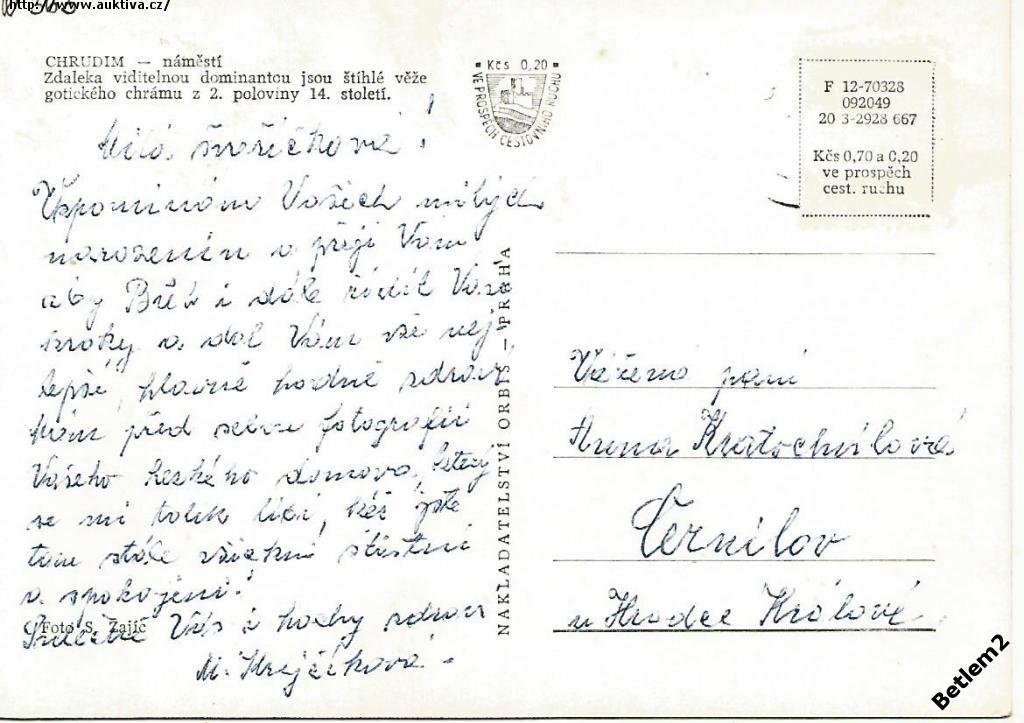 http://www.auktiva.cz/
CHRUDIM — náměstí
Zdaleka viditelnou dominantou jsou štíhlé věže
gotického chrámu z 2. poloviny 14. století.
Kčs 0,20
VE PROSPĚCH CESTOVNÍHO RUCHU
F 12-70328
092049
20 3-2928 667
Kčs 0,70 a 0,20
ve prospěch
cest. ruchu
Milá !
Vzpomínám Vašich milých
narozenin a přeji Vám
aby Bůh i dále řídil Vaše
kroky a dal Vám vše nej
lepší, hlavně hodně zdraví
Mám před sebou fotografii
Vašeho hezkého domova, který
se mi tolik líbí, kéž jste
tam stále všichni šťastni
a spokojeni!
Srdečně Vás i hochy zdraví
M. Krejčková -
Foto S. Zajíc
NAKLADATELSTVÍ ORBIS — PRAHA
Vážená paní
Anna Kratochvílová
Černilov
u Hradce Králové
Betlem2